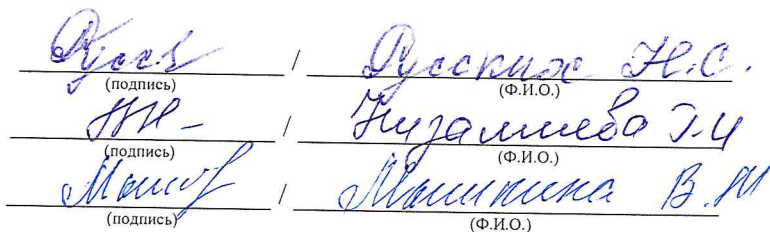 Русс / Русских Н.С.
(подпись) (Ф.И.О.)
/ Низамиева Г.И
(подпись) (Ф.И.О.)
/ Машкина В.М
(подпись) (Ф.И.О.)